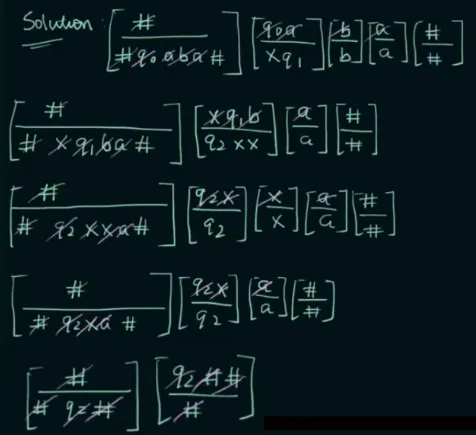 Solution : [#/#q₀aba#] [q₀a/xq₁] [b/b] [a/a] [#/#]
[#/#xq₁ba#] [xq₁b/q₂xx] [a/a] [#/#]
[#/#q₂xxa#] [q₂x/q₂] [x/x] [a/a] [#/#]
[#/#q₂xa#] [q₂x/q₂] [a/a] [#/#]
[#/#q₂#] [q₂##/#]